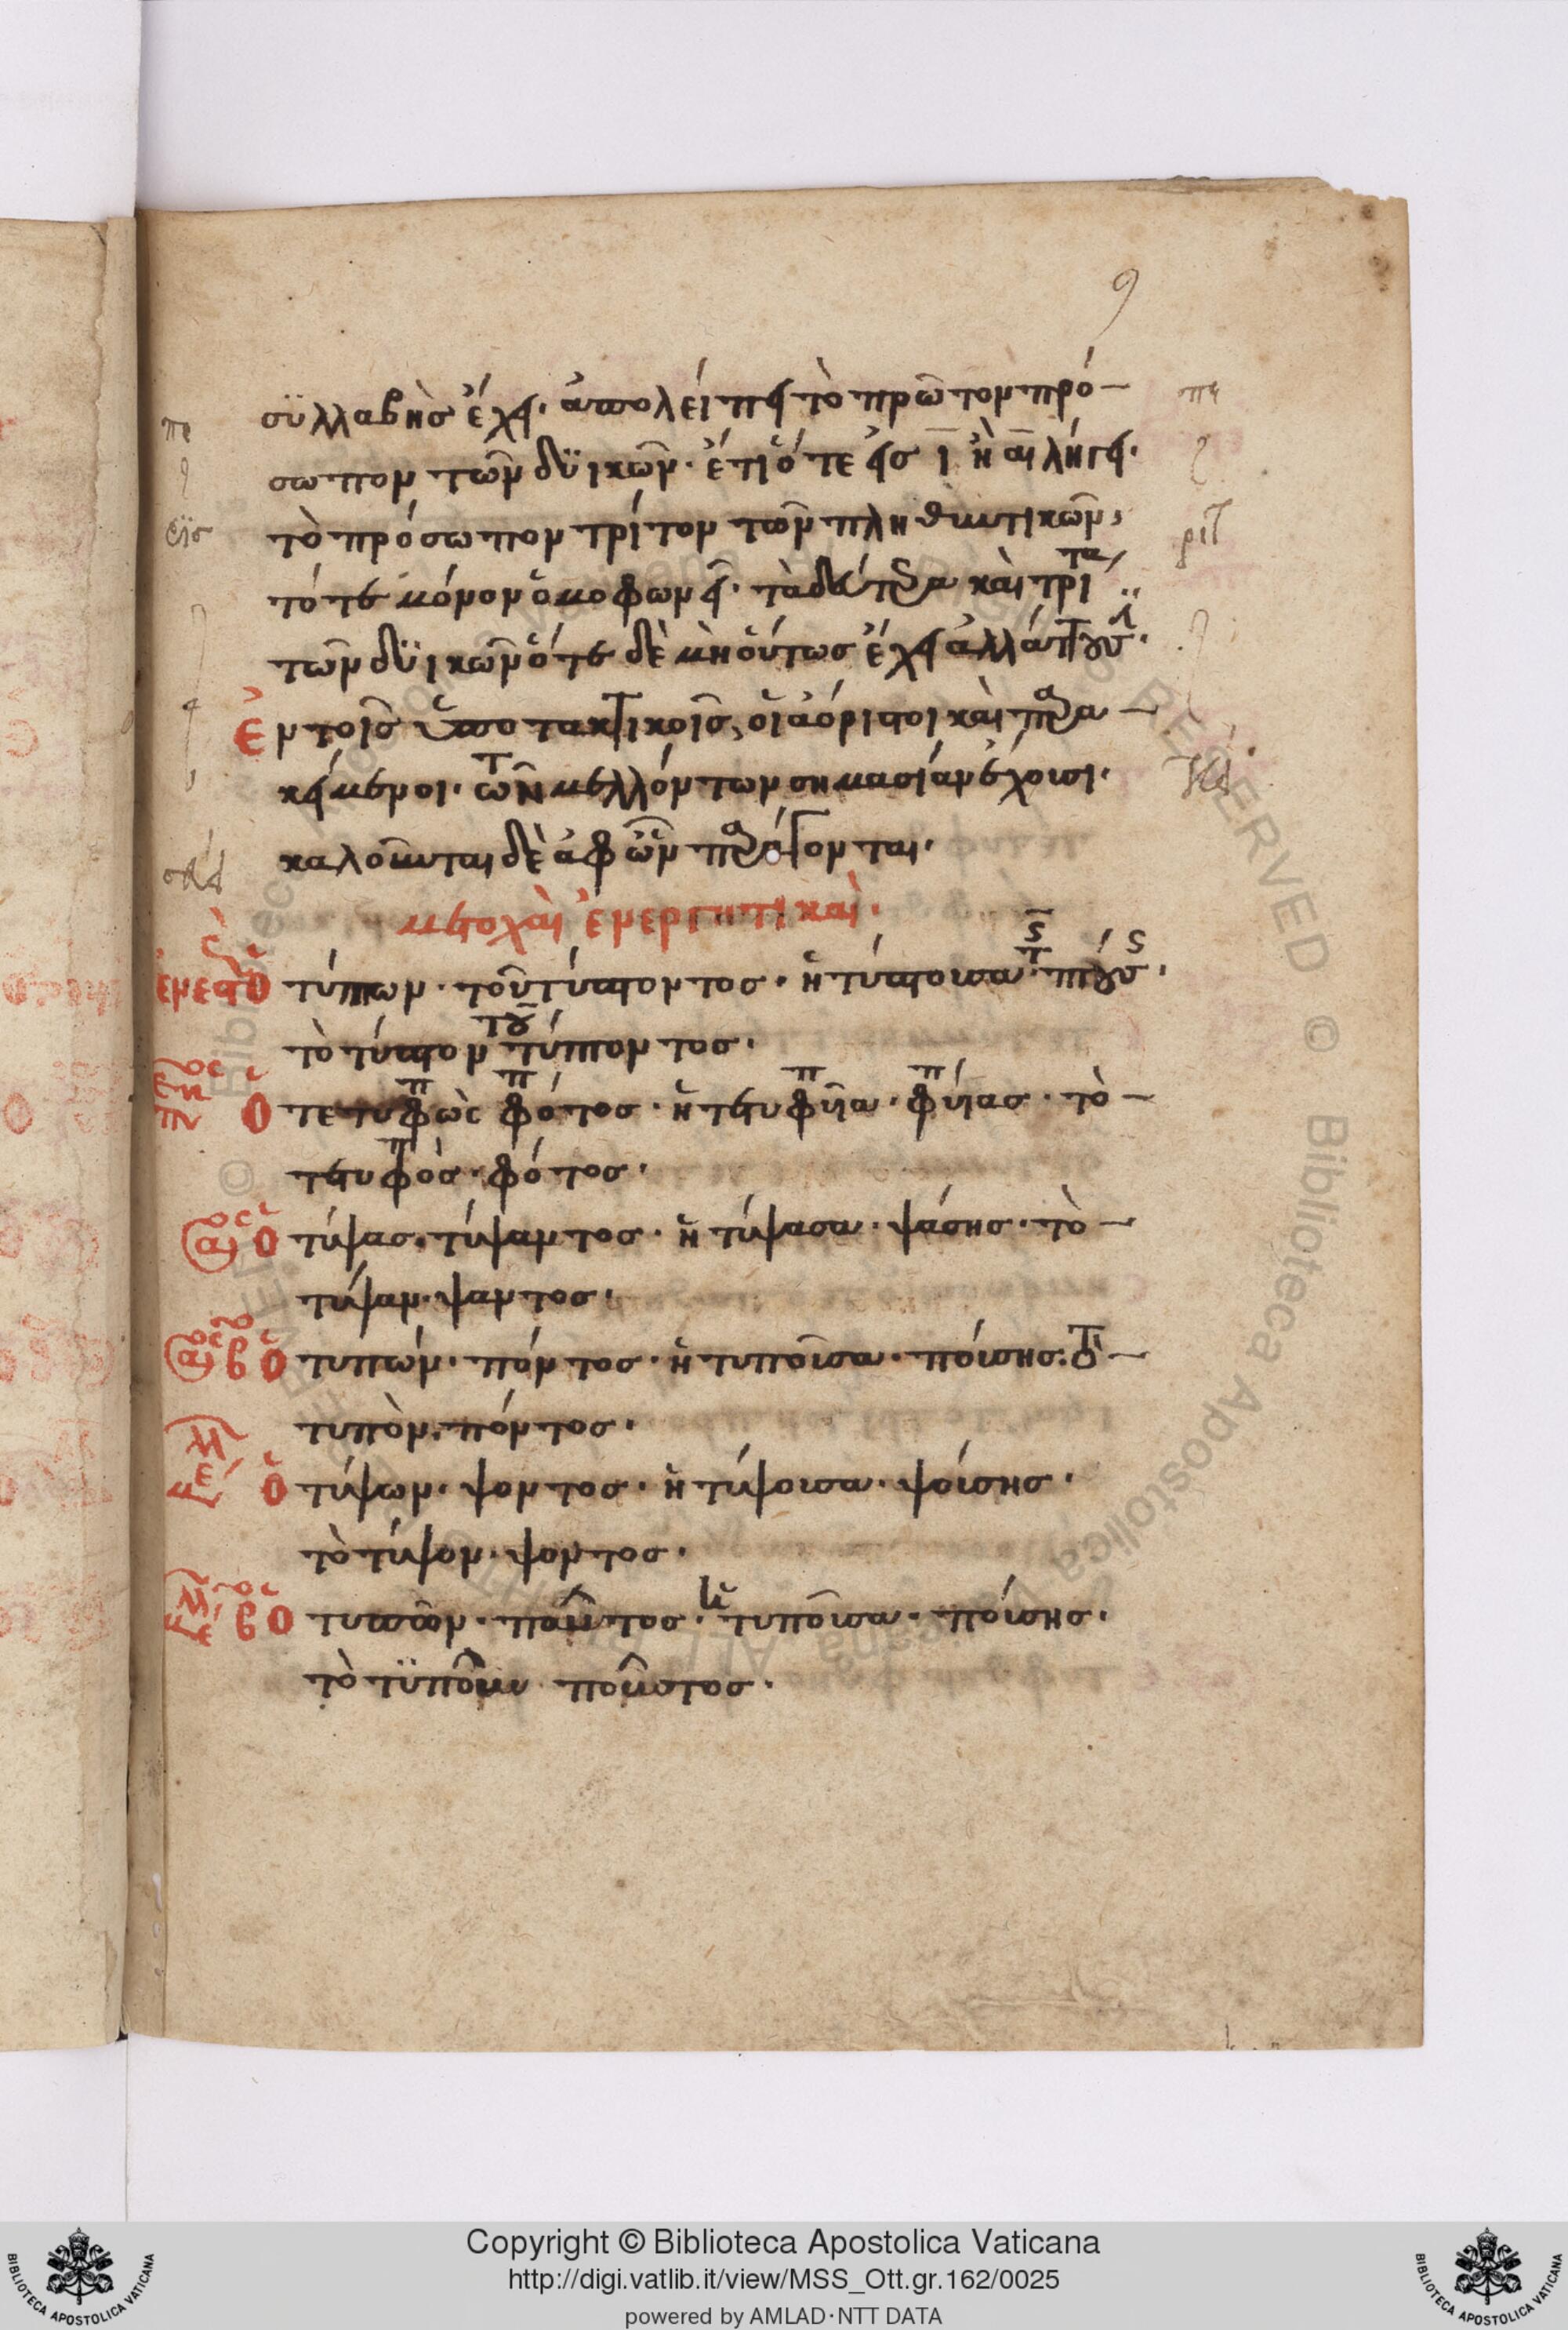 9
συλλαβῆς ἔχει. ἀπολείπει τὸ πρῶτον πρό-
σωπον τῶν δϋικῶν. ἔτι ὅτε εἰς ῑ ἢ αι λήγει.
τὸ πρόσωπον τρίτον τῶν πληθυντικῶν,
τότε μόνον ὁμοφωνεῖ. τὰ δεύτερα καὶ τρίτα
τῶν δϋικῶν ὅτε δὲ μὴ οὕτως ἔχει
Ἐν τοῖς ὑποτακτικοῖς, οἱ ἀόριστοι καὶ παρα-
κείμενοι. τῶν μελλόντων σημασίαν ἔχουσι.
καλοῦνται δὲ ἀφ' ὧν παράγονται.
μετοχαὶ ἐνεργητικαί.
ὁ τύπτων. τοῦ τύπτοντος. ἡ τύπτουσα. τῆς πτούσης.
τὸ τύπτον τοῦ τύπτοντος.
ὁ τετυφὼς φότος. ἡ τετυφῖα. φύιας. τὸ-
τετυφὸς. φότος.
ὁ τύψας. τύψαντος. ἡ τύψασα. ψάσης. τὸ-
τύψαν. ψαντος.
β ὁ τυπών. πόντος. ἡ τυποῦσα. πούσης. τὸ-
τυπὸν. πόντος.
ὁ τύψων. ψοντος. ἡ τύψουσα. ψούσης.
τὸ τύψον. ψοντος.
β ὁ τυπῶν. ποῦντος. ἡ τυποῦσα. πούσης.
τὸ τϋποῦν ποῦντος.
Copyright © Biblioteca Apostolica Vaticana
http://digi.vatlib.it/view/MSS_Ott.gr.162/0025
powered by AMLAD·NTT DATA
BIBLIOTECA APOSTOLICA VATICANA
BIBLIOTECA APOSTOLICA VATICANA